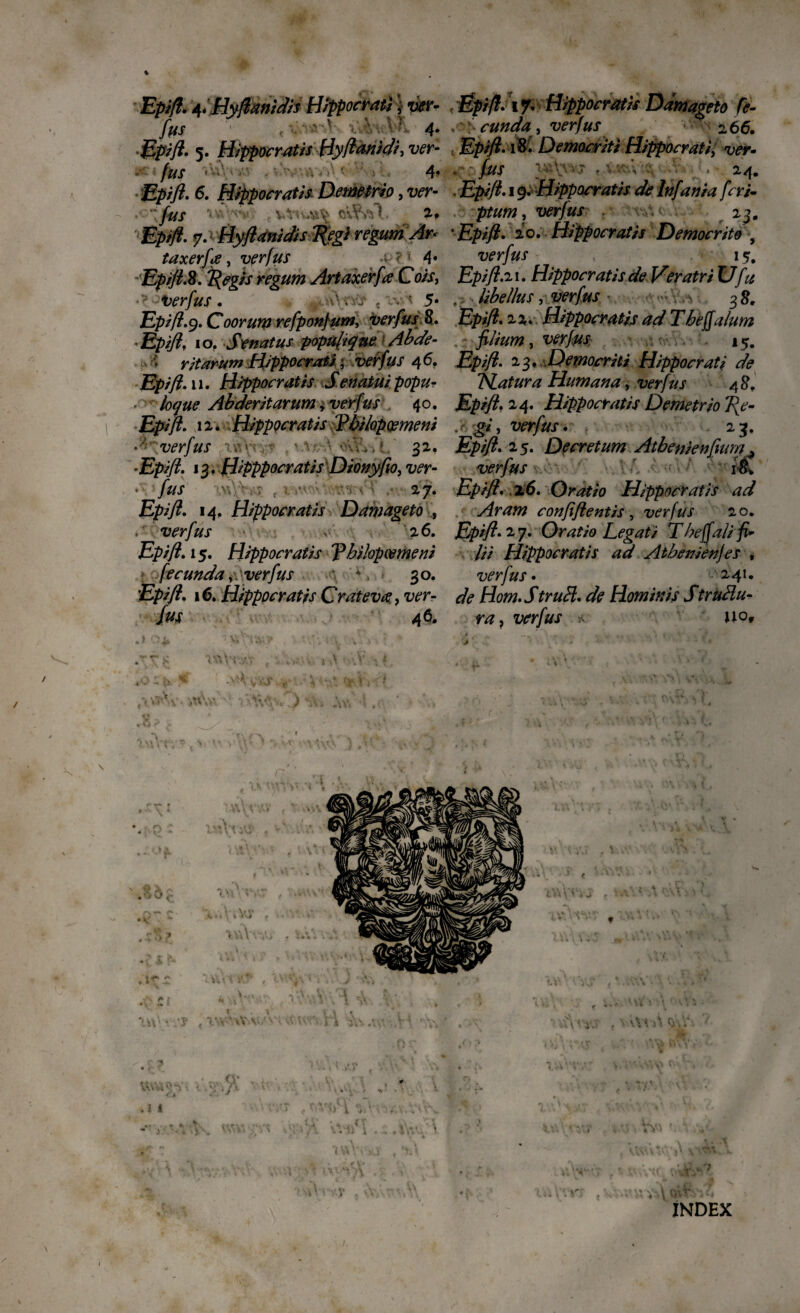 Epiſt. 4. Hyſtanidis Hippocrati, ver-
ſus 4.
Epiſt. 5. Hippocratis Hyſtanidi, ver-
ſus 4.
Epiſt. 6. Hippocratis Demetrio, ver-
ſus 2.
Epiſt. 7. Hyſtanidis Regi regum Ar-
taxerſæ, verſus 4.
Epiſt.8. Regis regum Artaxerſæ Cois,
verſus. 5.
Epiſt.9. Coorum reſponſum, verſus 8.
Epiſt. 10. Senatus populique Abde-
ritarum Hippocrati, verſus 46.
Epiſt. 11. Hippocratis Senatui popu-
loque Abderitarum, verſus 40.
Epiſt. 12. Hippocratis Philopœmeni
verſus 32.
Epiſt. 13. Hipppocratis Dionyſio, ver-
ſus 27.
Epiſt. 14. Hippocratis Damageto,
verſus 26.
Epiſt. 15. Hippocratis Philopœmeni
ſecunda, verſus 30.
Epiſt. 16. Hippocratis Cratevæ, ver-
ſus 46.
Epiſt. 17. Hippocratis Damageto ſe-
cunda, verſus 266.
Epiſt. 18. Democriti Hippocrati, ver-
ſus 24.
Epiſt. 19. Hippocratis de Inſania ſcri-
ptum, verſus 23.
Epiſt. 20. Hippocratis Democrito,
verſus 15.
Epiſt.21. Hippocratis de Veratri Uſu
libellus, verſus 38.
Epiſt. 22. Hippocratis ad Theſſalum
filium, verſus 15.
Epiſt. 23. Democriti Hippocrati de
Natura Humana, verſus 48.
Epiſt. 24. Hippocratis Demetrio Re-
gi, verſus. 23.
Epiſt. 25. Decretum Athenienſium,
verſus 18.
Epiſt. 26. Oratio Hippocratis ad
Aram conſiſtentis, verſus 20.
Epiſt. 27. Oratio Legati Theſſali fi-
lii Hippocratis ad Athenienſes,
verſus. 241.
de Hom. Struct. de Hominis Structu-
ra, verſus 110.
INDEX